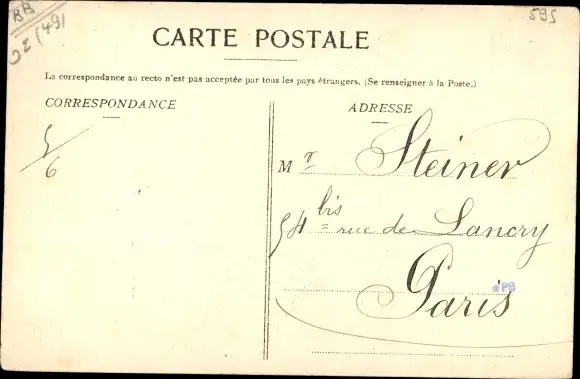 BB
(49)
595
CARTE POSTALE
La correspondance au recto n'est pas acceptée par tous les pays étrangers. (Se renseigner à la Poste.)
CORRESPONDANCE
ADRESSE
5/6
Mr Steiner
54 bis rue de Lancry
Paris
PB